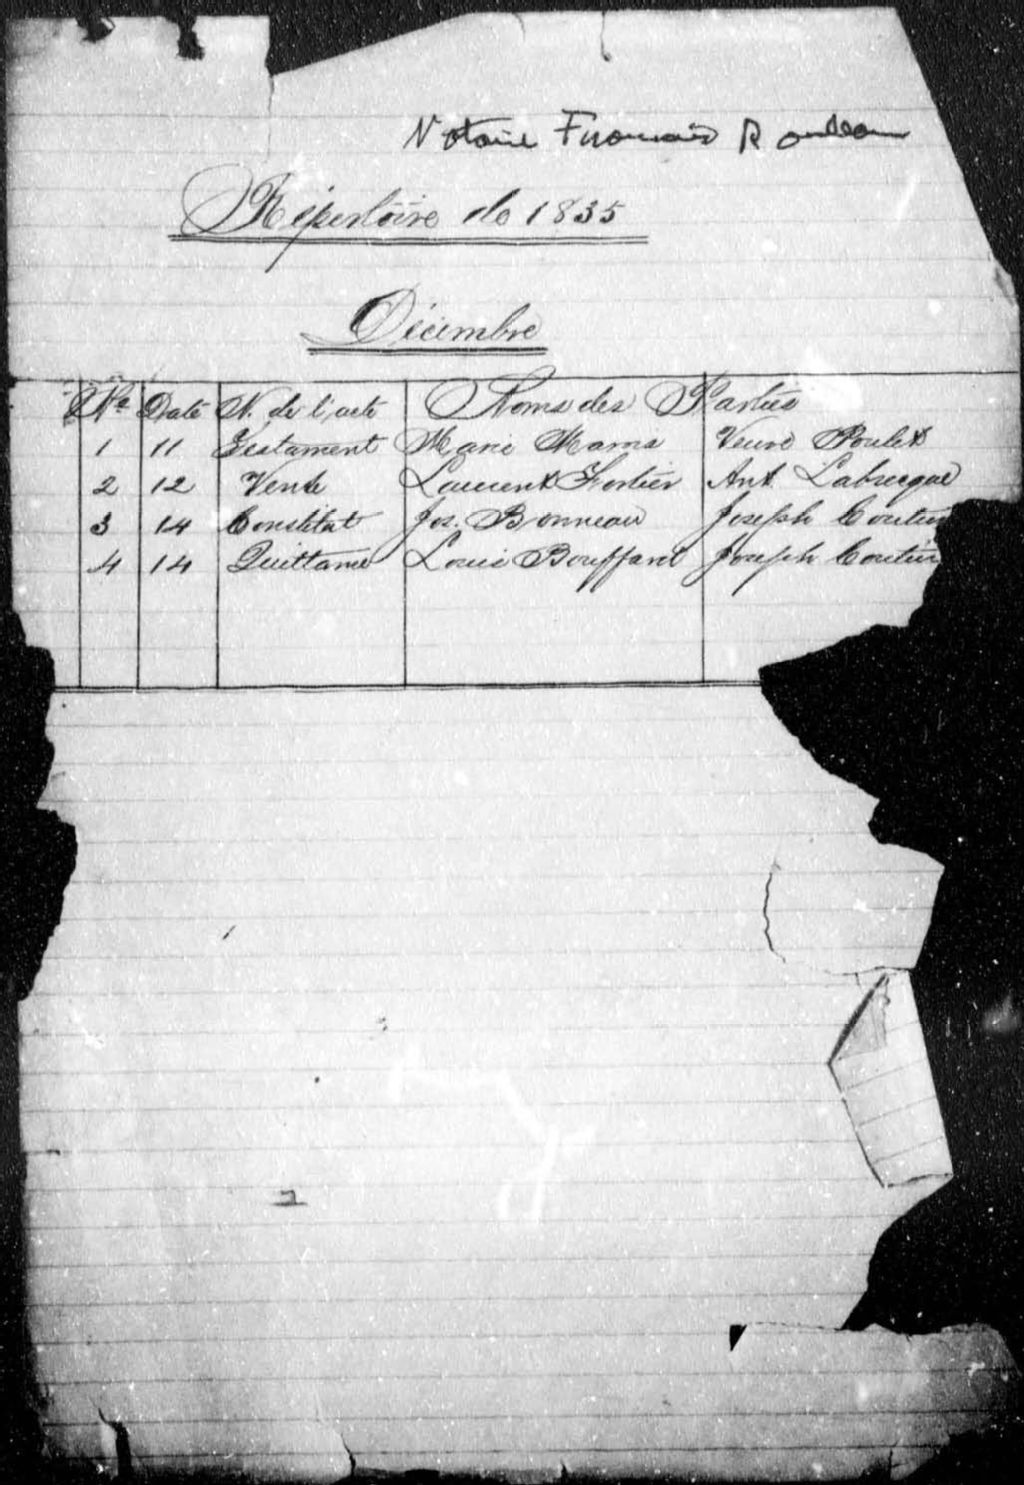 Notaire François Rouleau
Répertoire de 1835
Décembre
No Date N. de l'acte Noms des Parties
1 11 Testament Marie Marois Veuve Poulet
2 12 Vente Laurent Fortier Ant. Labrecque
3 14 Constitut Jos. Bonneau Joseph
4 14 Quittance Louis Bouffard Joseph